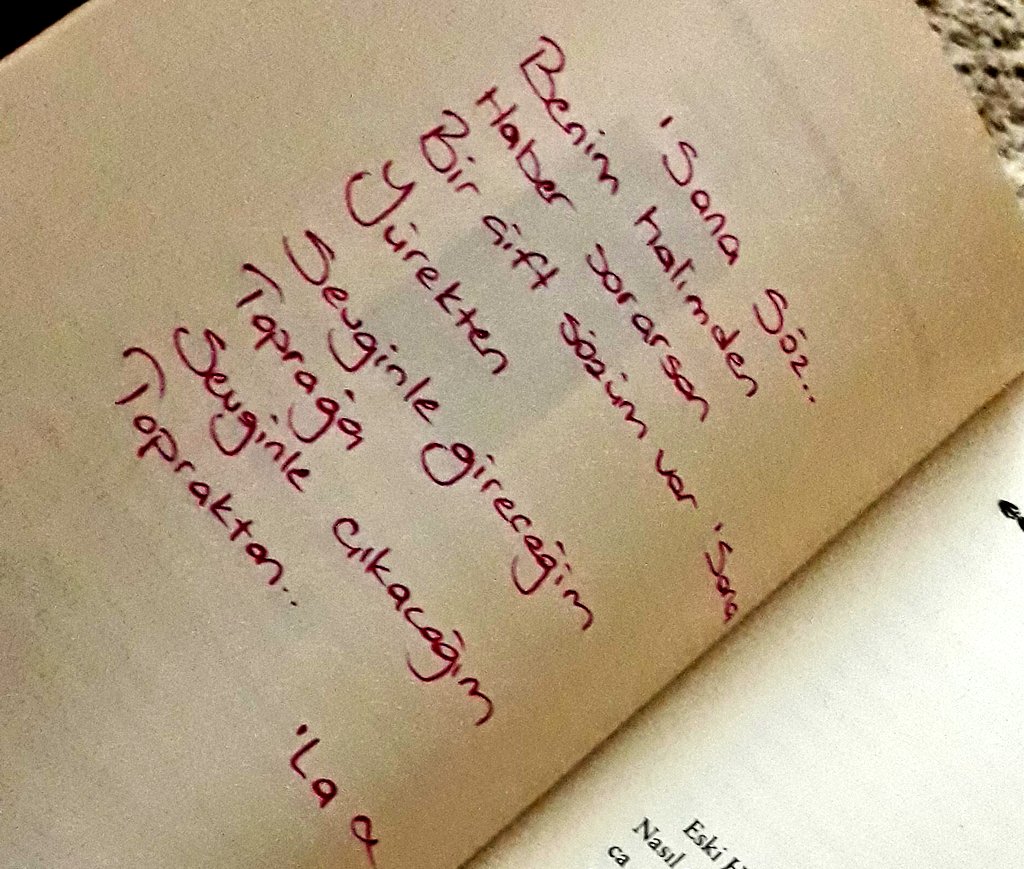 'Sana Söz...
Benim Halimden
Haber sorarsan
Bir çift sözüm var 'Sana
Yürekten
Sevginle gireceğim
Toprağa
Sevginle çıkacağım
Topraktan...
'La
Eski
Nasıl
ca